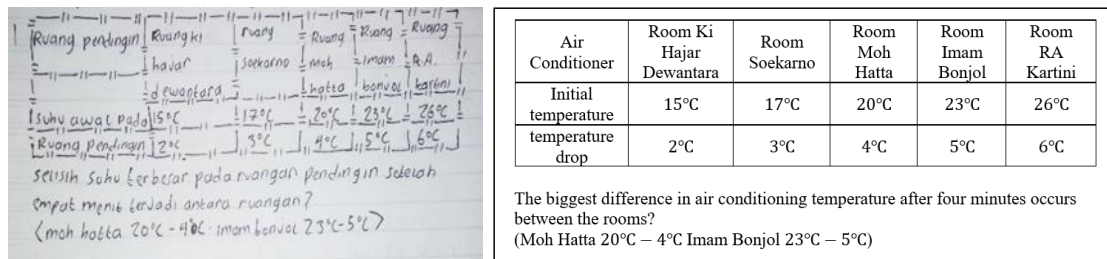 1
Ruang pendingin Ruang ki hajar dewantara ruang soekarno Ruang moh hatta Ruang imam bonjol Ruang R.A. kartini
suhu awal pada 15°C 17°C 20°C 23°C 26°C
Ruang pendingin 2°C 3°C 4°C 5°C 6°C
selisih suhu terbesar pada ruangan pendingin setelah
empat menit terjadi antara ruangan?
(moh hatta 20°C - 4°C imam bonjol 23°C - 5°C)
Air Conditioner Room Ki Hajar Dewantara Room Soekarno Room Moh Hatta Room Imam Bonjol Room RA Kartini
Initial temperature 15°C 17°C 20°C 23°C 26°C
temperature drop 2°C 3°C 4°C 5°C 6°C
The biggest difference in air conditioning temperature after four minutes occurs
between the rooms?
(Moh Hatta 20°C – 4°C Imam Bonjol 23°C – 5°C)